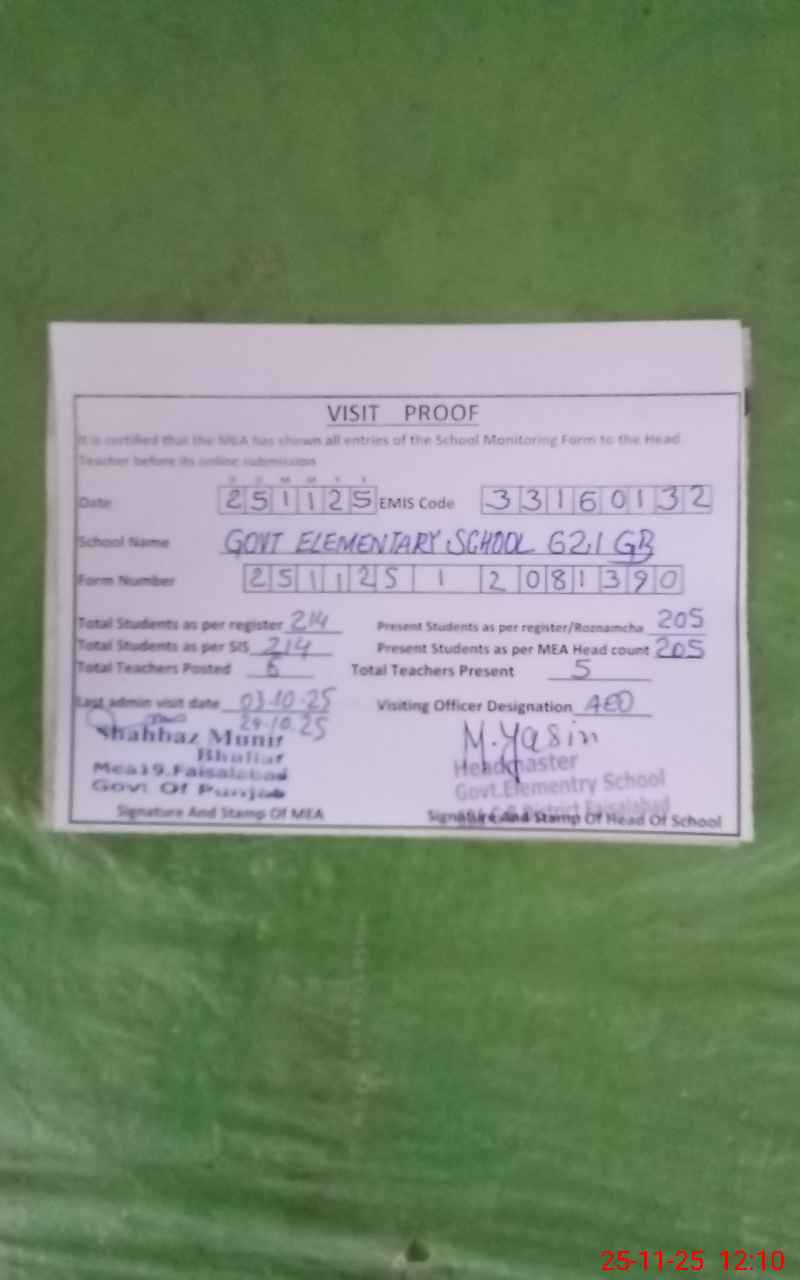 VISIT PROOF
It is certified that the MEA has shown all entries of the School Monitoring Form to the Head
Teacher before its online submission
D D M M Y Y
Date 251125 EMIS Code 33160132
School Name GOVT ELEMENTARY SCHOOL 621 GB
Form Number 251125 1 2081390
Total Students as per register 214 Present Students as per register/Roznamcha 205
Total Students as per SIS 214 Present Students as per MEA Head count 205
Total Teachers Posted 6 Total Teachers Present 5
Last admin visit date 03.10.25 Visiting Officer Designation AEO
24.10.25
Shahbaz Munir M.Yasin
Bhullar Headmaster
Mea19.Faisalabad Govt.Elementry School
Govt Of Punjab G.B District Faisalabad
Signature And Stamp Of MEA Signature And Stamp Of Head Of School
25-11-25 12:10